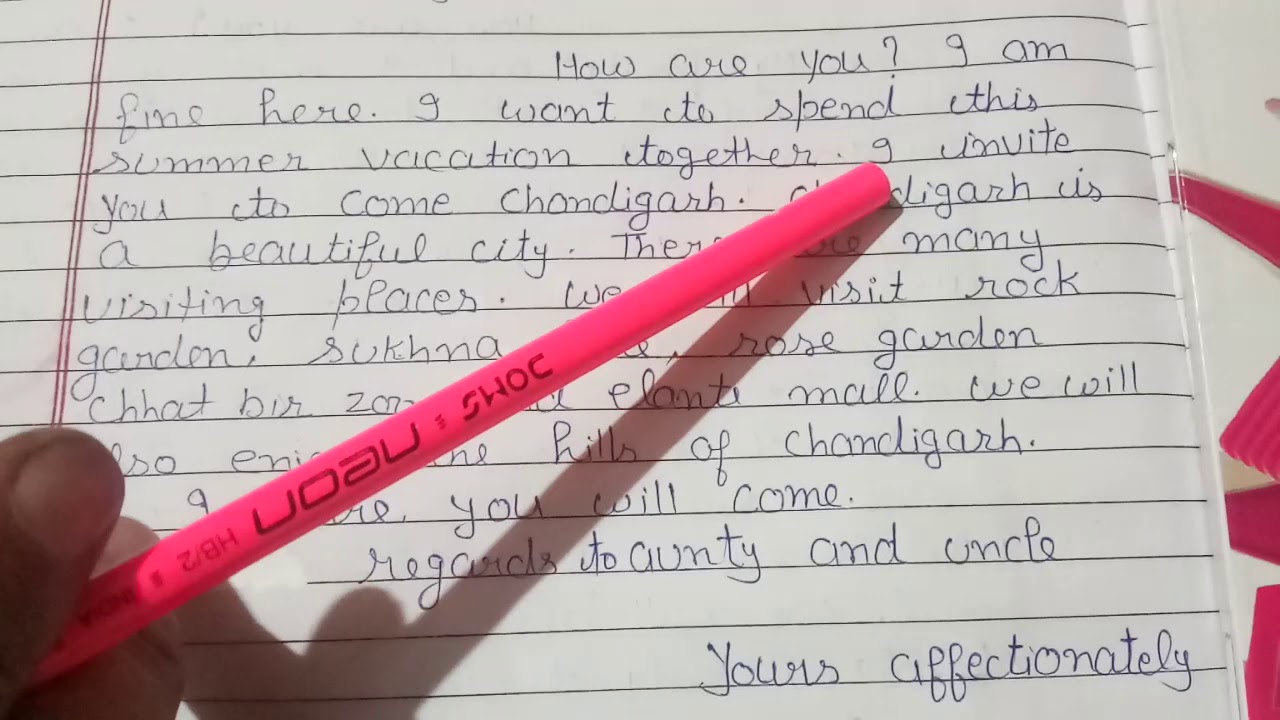 How are you? I am
fine here. I want to spend this
summer vacation together. I invite
you to come Chandigarh. digarh is
a beautiful city. There are many
visiting places. We visit rock
garden, sukhna rose garden
chhat bir zoo elante mall. We will
also enjoy the hills of chandigarh.
I you will come.
regards to aunty and uncle
Yours affectionately
DOMS neon HB/2 INDIA